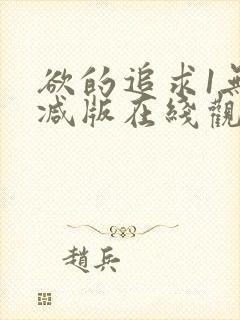 欲的追求1無
减版在綫觀
趙兵